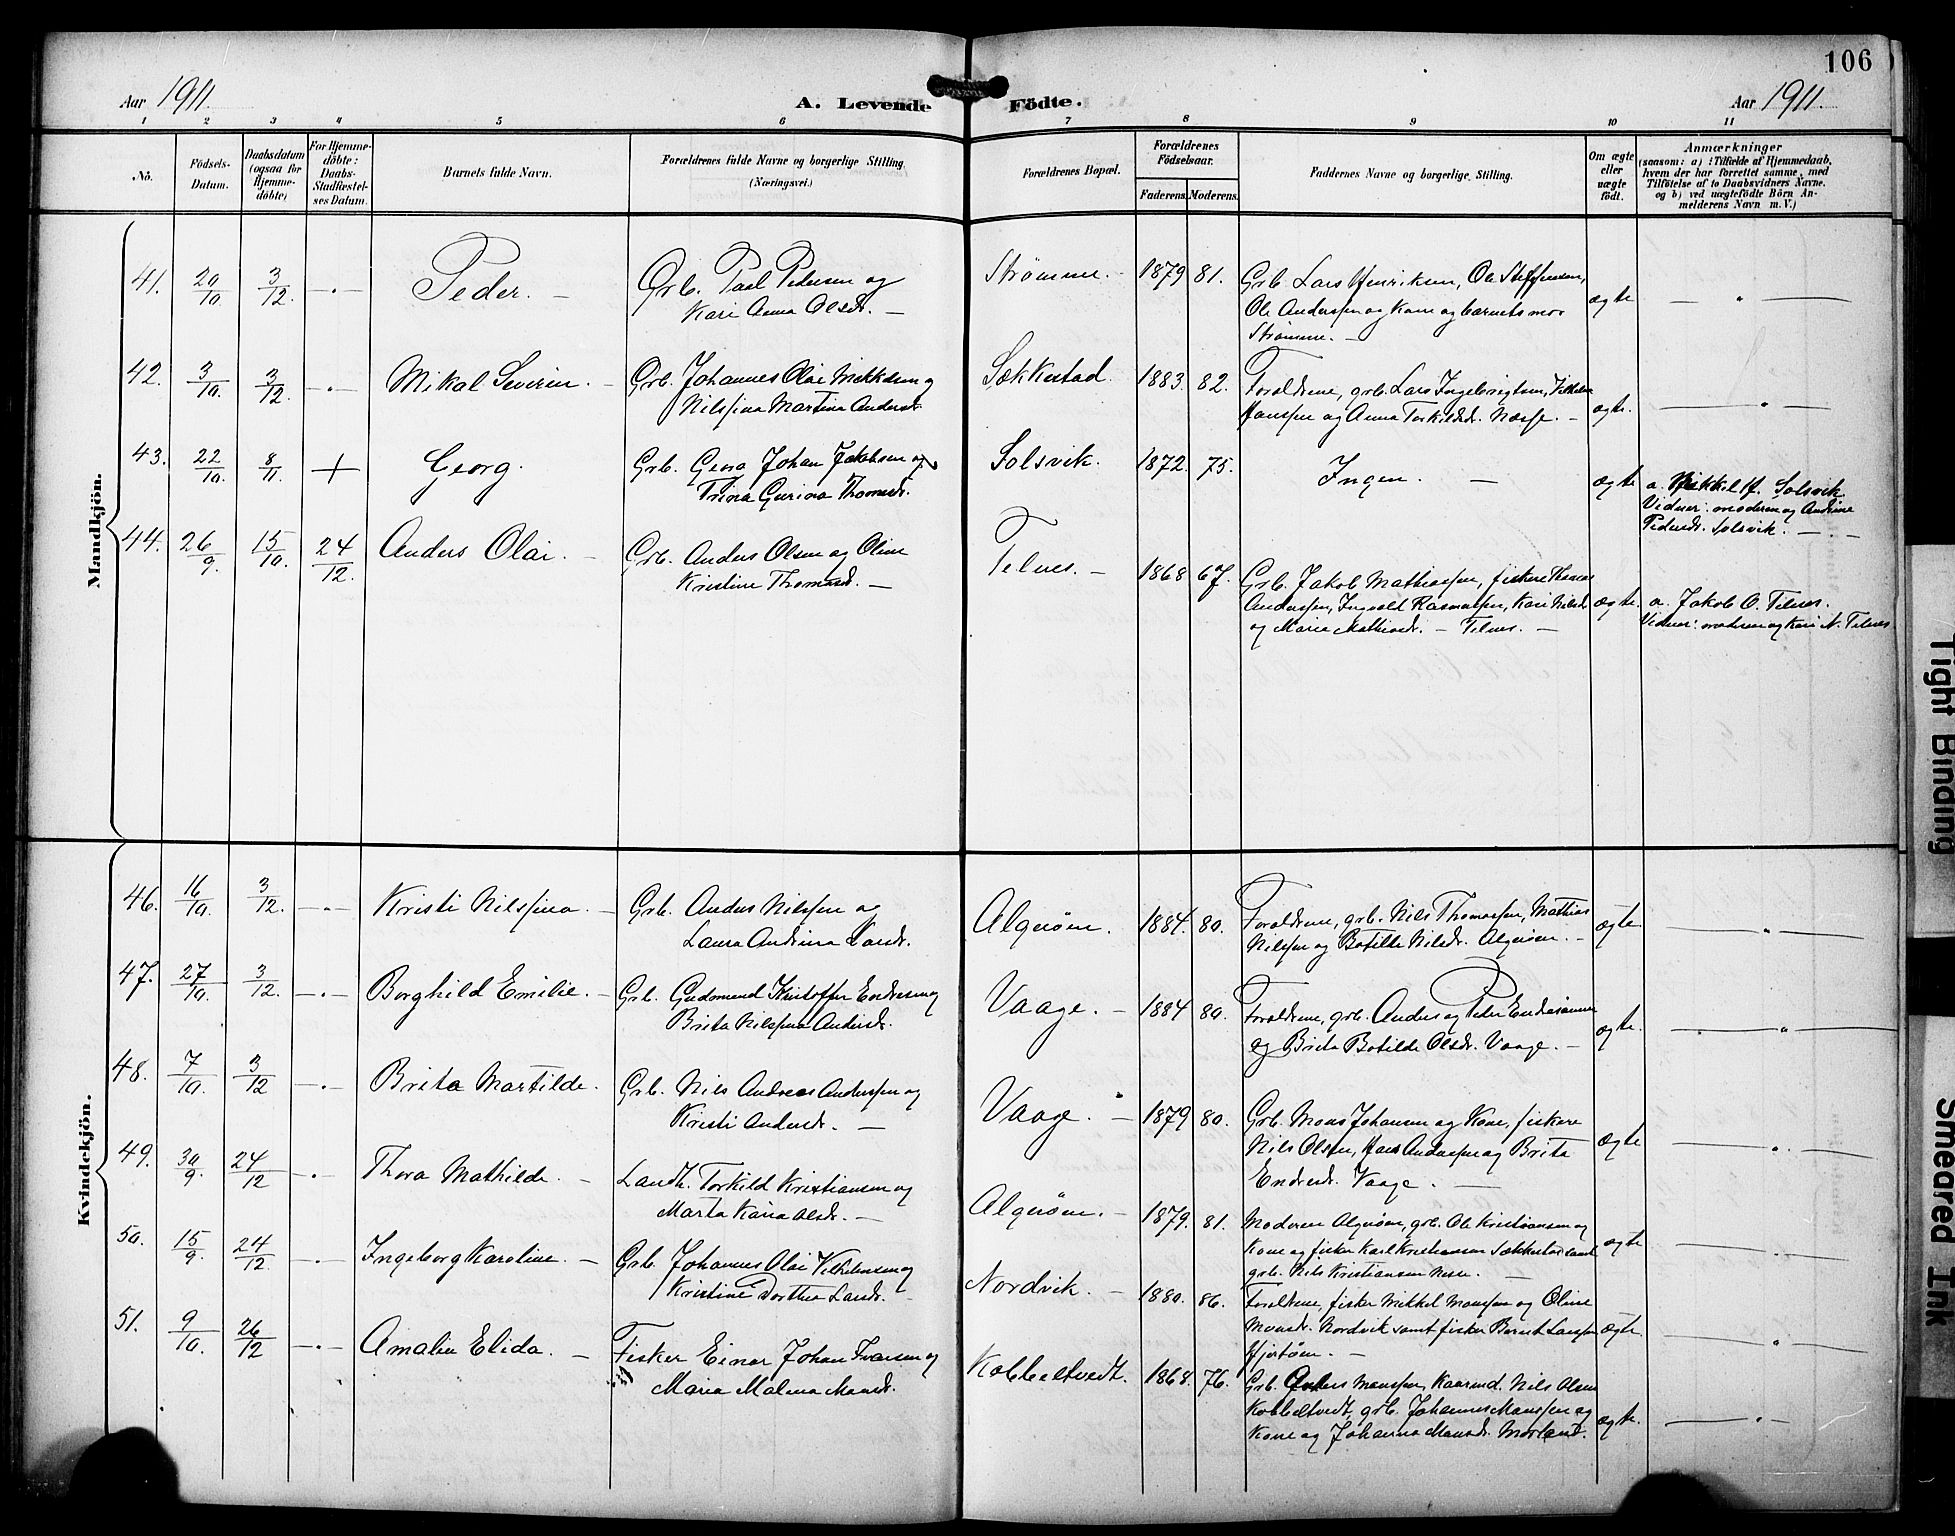 106
Aar 1911.
A. Levende Födte.
Aar 1911.
1 2 3 4 5 6 7 8 9 10 11
No.
Födsels-Datum.
Daabsdatum (ogsaa for Hjemme-döbte)
For Hjemme-döbte: Daabs-Stadfæstel-ses Datum.
Barnets fulde Navn.
Forældrenes fulde Navne og borgerlige Stilling.
(Næringsvei.)
Forældrenes Bopæl.
Forældrenes Födselsaar.
Faderens. Moderens.
Faddernes Navne og borgerlige Stilling.
Om ægte eller uægte født.
Anmærkninger
(saasom: a) i Tilfælde af Hjemmedaab,
hvem der har forrettet samme, med
Tilføielse af to Daabsvidners Navne.
og b) ved uægtefödte Börn An-
melderens Navn m. V.)
Mandkjön.
41. 20/10. 3/12. Peder. Grb. Paul Pedersen og
Kari Anna Olsdr.
Strømme. 1879 81. Grb. Lars Henriksen, Ole Steffensen,
Ole Anderssen og Kone og barnets mor
Strømme.
ægte
42. 3/10. 3/12. Mikal Severin. Grb. Johannes Olai Mikkelsen og
Nilssina Martina Andersdr.
Sækkestad. 1883. 82. Forældrene, grb. Lars Ingebrigtsen, Vilhelm
Hanssen og Anna Torkildsdr. Næsse.
ægte.
43. 22/10. 8/11. + Georg. Grb. Georg Johan Jakobsen og
Trina Gurina Thomsdr.
Solsvik. 1872. 75. Ingen. ægte
a. Mikkel H. Solsvik
Vidner: moderen og Andrine
Pedersdr. Solsvik.
44. 26/9. 15/10. 24/12. Anders Olai. Grb. Anders Olsen og Oline
Kristine Thomasd.
Telnes. 1868 67. Grb. Jakob Mathiassen, fiskere Thomas
Anderssen, Ingvald Rasmussen, Kari Nilsdr
og Maria Mathiasdr. Telnes.
ægte.
a. Jakob O. Telnes.
Vidner: moderen og Kari N. Telnes
Kvindekjön.
46. 16/10. 3/12. Kristi Nilssina. Grb. Anders Nilssen og
Laura Andrina Larsdr.
Algerøen. 1884. 80. Forældrene, grb. Nils Thomassen, Mathias
Nilssen og Botille Nilsdr. Algerøen.
ægte
47. 27/10. 3/12. Borghild Emilie. Grb. Gudmund Kristoffer Endresen og
Brita Nilssina Andersdr.
Vaage. 1884 80. Forældrene, grb. Anders og Peder Endresønner
og Brita Botilde Olsdr. Vaage.
ægte.
48. 7/10. 3/12 Brita Martilde. Grb. Nils Andreas Anderssen og
Kristi Andersdr.
Vaage. 1879 80. Grb. Mons Johansen og Kone, fiskere
Nils Olsen, Hans Andersen og Brita
Endresdr. Vaage.
ægte
49. 30/9. 24/12 Thora Mathilde. Landh. Torkild Kristiansen og
Marta Karia Olsdr.
Algerøen. 1879. 81. Moderen Algerøen, grb. Ole Kristiansen og
Kone og fisker Karl Kristiansen Sækkestad samt
grb. Nils Kristiansen Nesse.
ægte
50. 15/9. 24/12. Ingeborg Karoline. Grb. Johannes Olai Vilhelmsen og
Kristine Dorthea Larsdr.
Nordvik. 1880. 86. Forældrene, fisker Mikkel Monssen og Oline
Monsdr. Nordvik samt fisker Bernt Larssen
Hjertøen.
ægte.
51. 9/10. 26/12 Amalie Elida. Fisker Einar Johan Ivarsen og
Maria Malena Monsdr.
Kobbeltvedt. 1868. 76. Grb. Anders Monssen, Nils Olsen
Kobbeltvedt, grb. Johannes Monssen og
Kone og Johanna Monsdr. Morland.
ægte.
Tight Binding
Smeared Ink